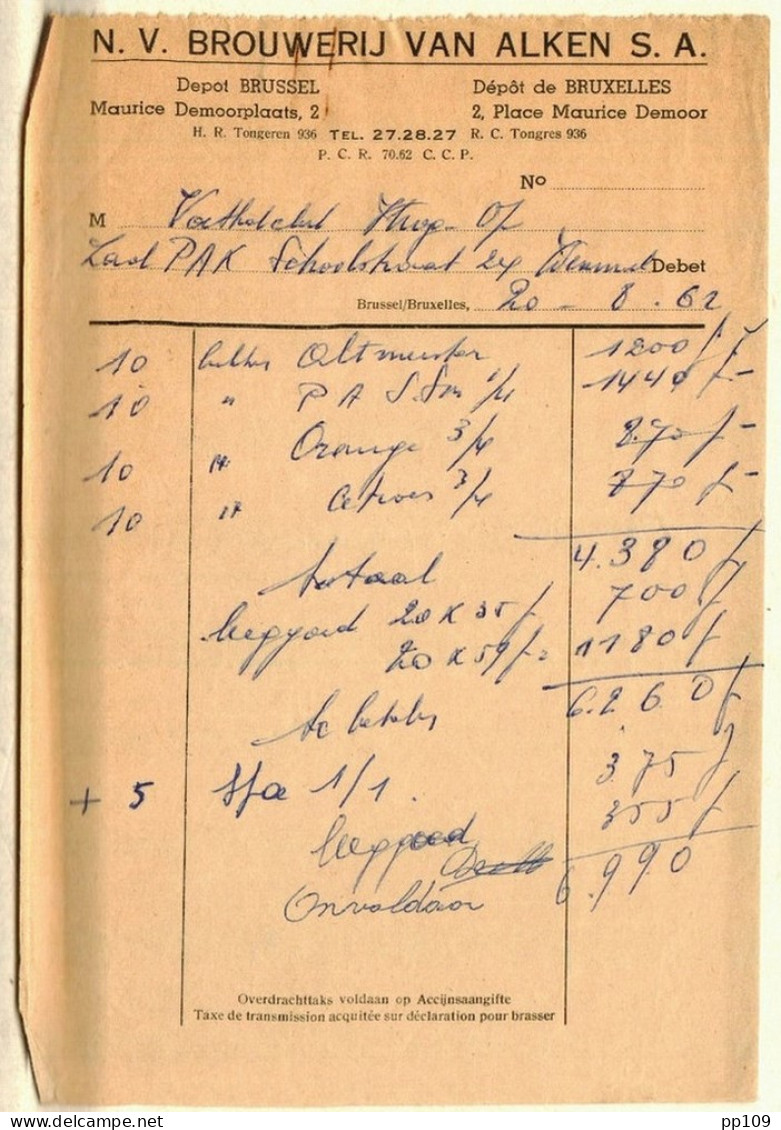 N. V. BROUWERIJ VAN ALKEN S. A.
Depot BRUSSEL Dépôt de BRUXELLES
Maurice Demoorplaats, 2 2, Place Maurice Demoor
H. R. Tongeren 936 TEL. 27.28.27 R. C. Tongres 936
P. C. R. 70.62 C. C. P.
No
M
PAK Schoolstraat 24 Debet
Brussel/Bruxelles, 20 - 8 . 62
10 bakken Altmunster 1200 f
10 " P A 1/4 1440 f -
10 " Orange 3/4 870 f -
10 " Citroen 3/4 870 f -
totaal 4.380 f
leeggoed 20 x 35 f 700 f
20 x 59 f = 1180 f
te betalen 6.260 f
+ 5 Spa 1/1. 375 f
leeggoed 355 f
Onvoldaan 6.990
Overdrachttaks voldaan op Accijnsaangifte
Taxe de transmission acquitée sur déclaration pour brasser
pp109